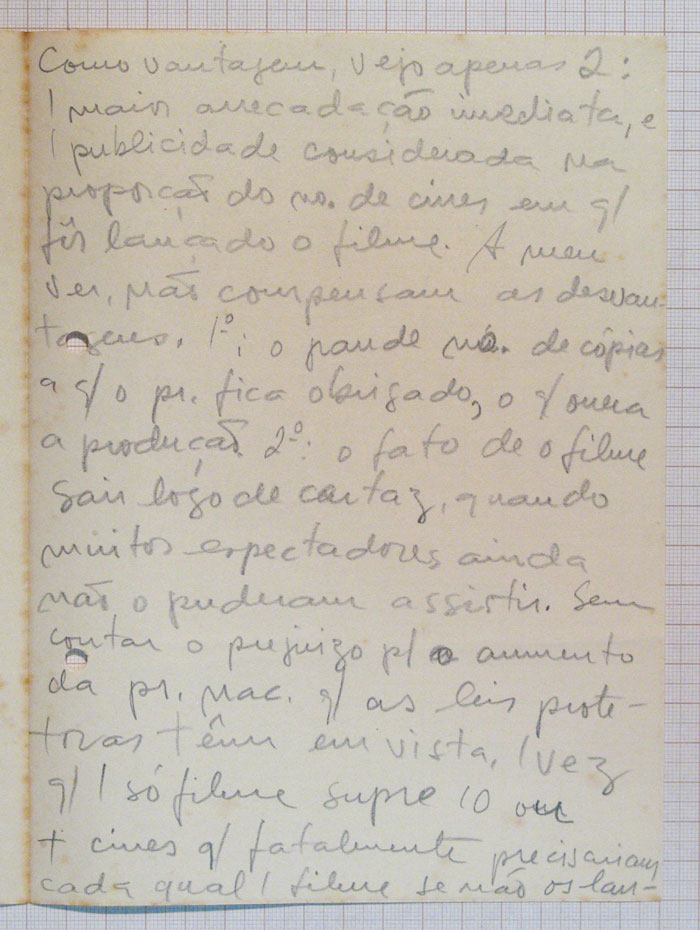 Como vantagem, vejo apenas 2:
1 maior arrecadação imediata, e
1 publicidade considerada na
proporção do no. de cines em q/
fôr lançado o filme. A meu
ver, não compensam as desvan-
tagens. 1º: o grande no. de cópias
a q/ o pr. fica obrigado, o q/ onera
a produção. 2º: o fato de o filme
sair logo de cartaz, quando
muitos espectadores ainda
não o puderam assistir. Sem
contar o prejuizo p/ o aumento
da pr. nac. q/ as leis prote-
toras têm em vista, 1 vez
q/ 1 só filme supre 10 ou
+ cines q/ fatalmente precisariam
cada qual 1 filme se não os lan-